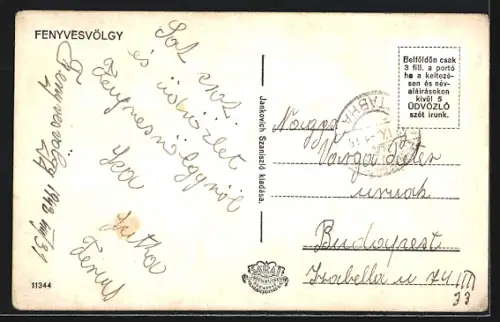 FENYVESVÖLGY
Sok csók
és üdvözlet
Fenyvesvölgyről
Jutka
Fenyvesvölgy 1942
Jankovich Szaniszló kiadása.
Belföldön csak
3 fill. a portó
ha a keltezé-
sen és név-
aláirásokon
kivül 5
ÜDVÖZLŐ
szót irunk.
Nagys.
Varga Péter
urnak
Budapest
Izabella u 74 III
33
BARASITS
11344